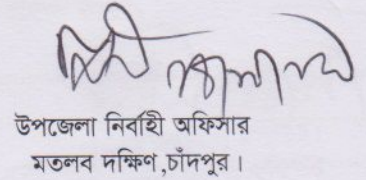 উপজেলা নির্বাহী অফিসার
মতলব দক্ষিণ,চাঁদপুর।